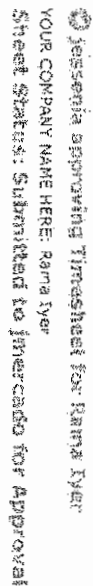 jessenia approving Timesheet for Rama Iyer
YOUR COMPANY NAME HERE: Rama Iyer
Sheet Status: Submitted to jmercado for Approval